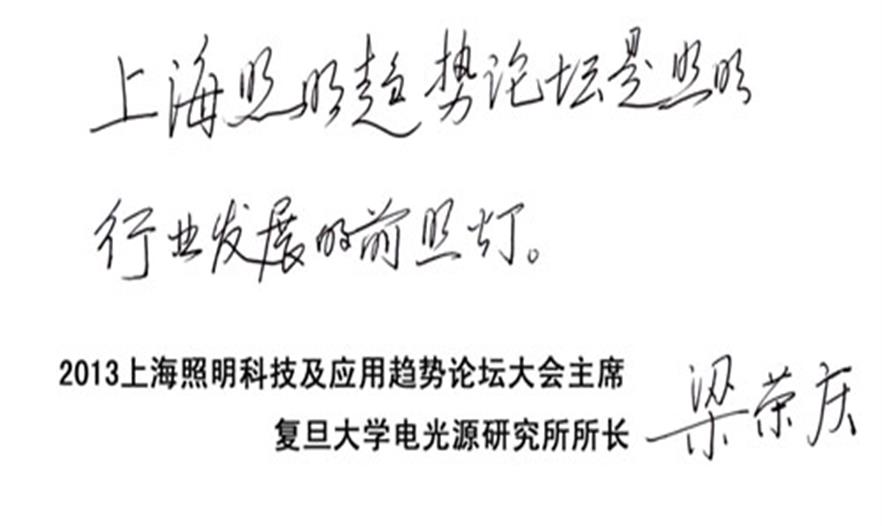 上海照明趋势论坛是照明
行业发展的前照灯。
2013上海照明科技及应用趋势论坛大会主席
复旦大学电光源研究所所长 梁荣庆